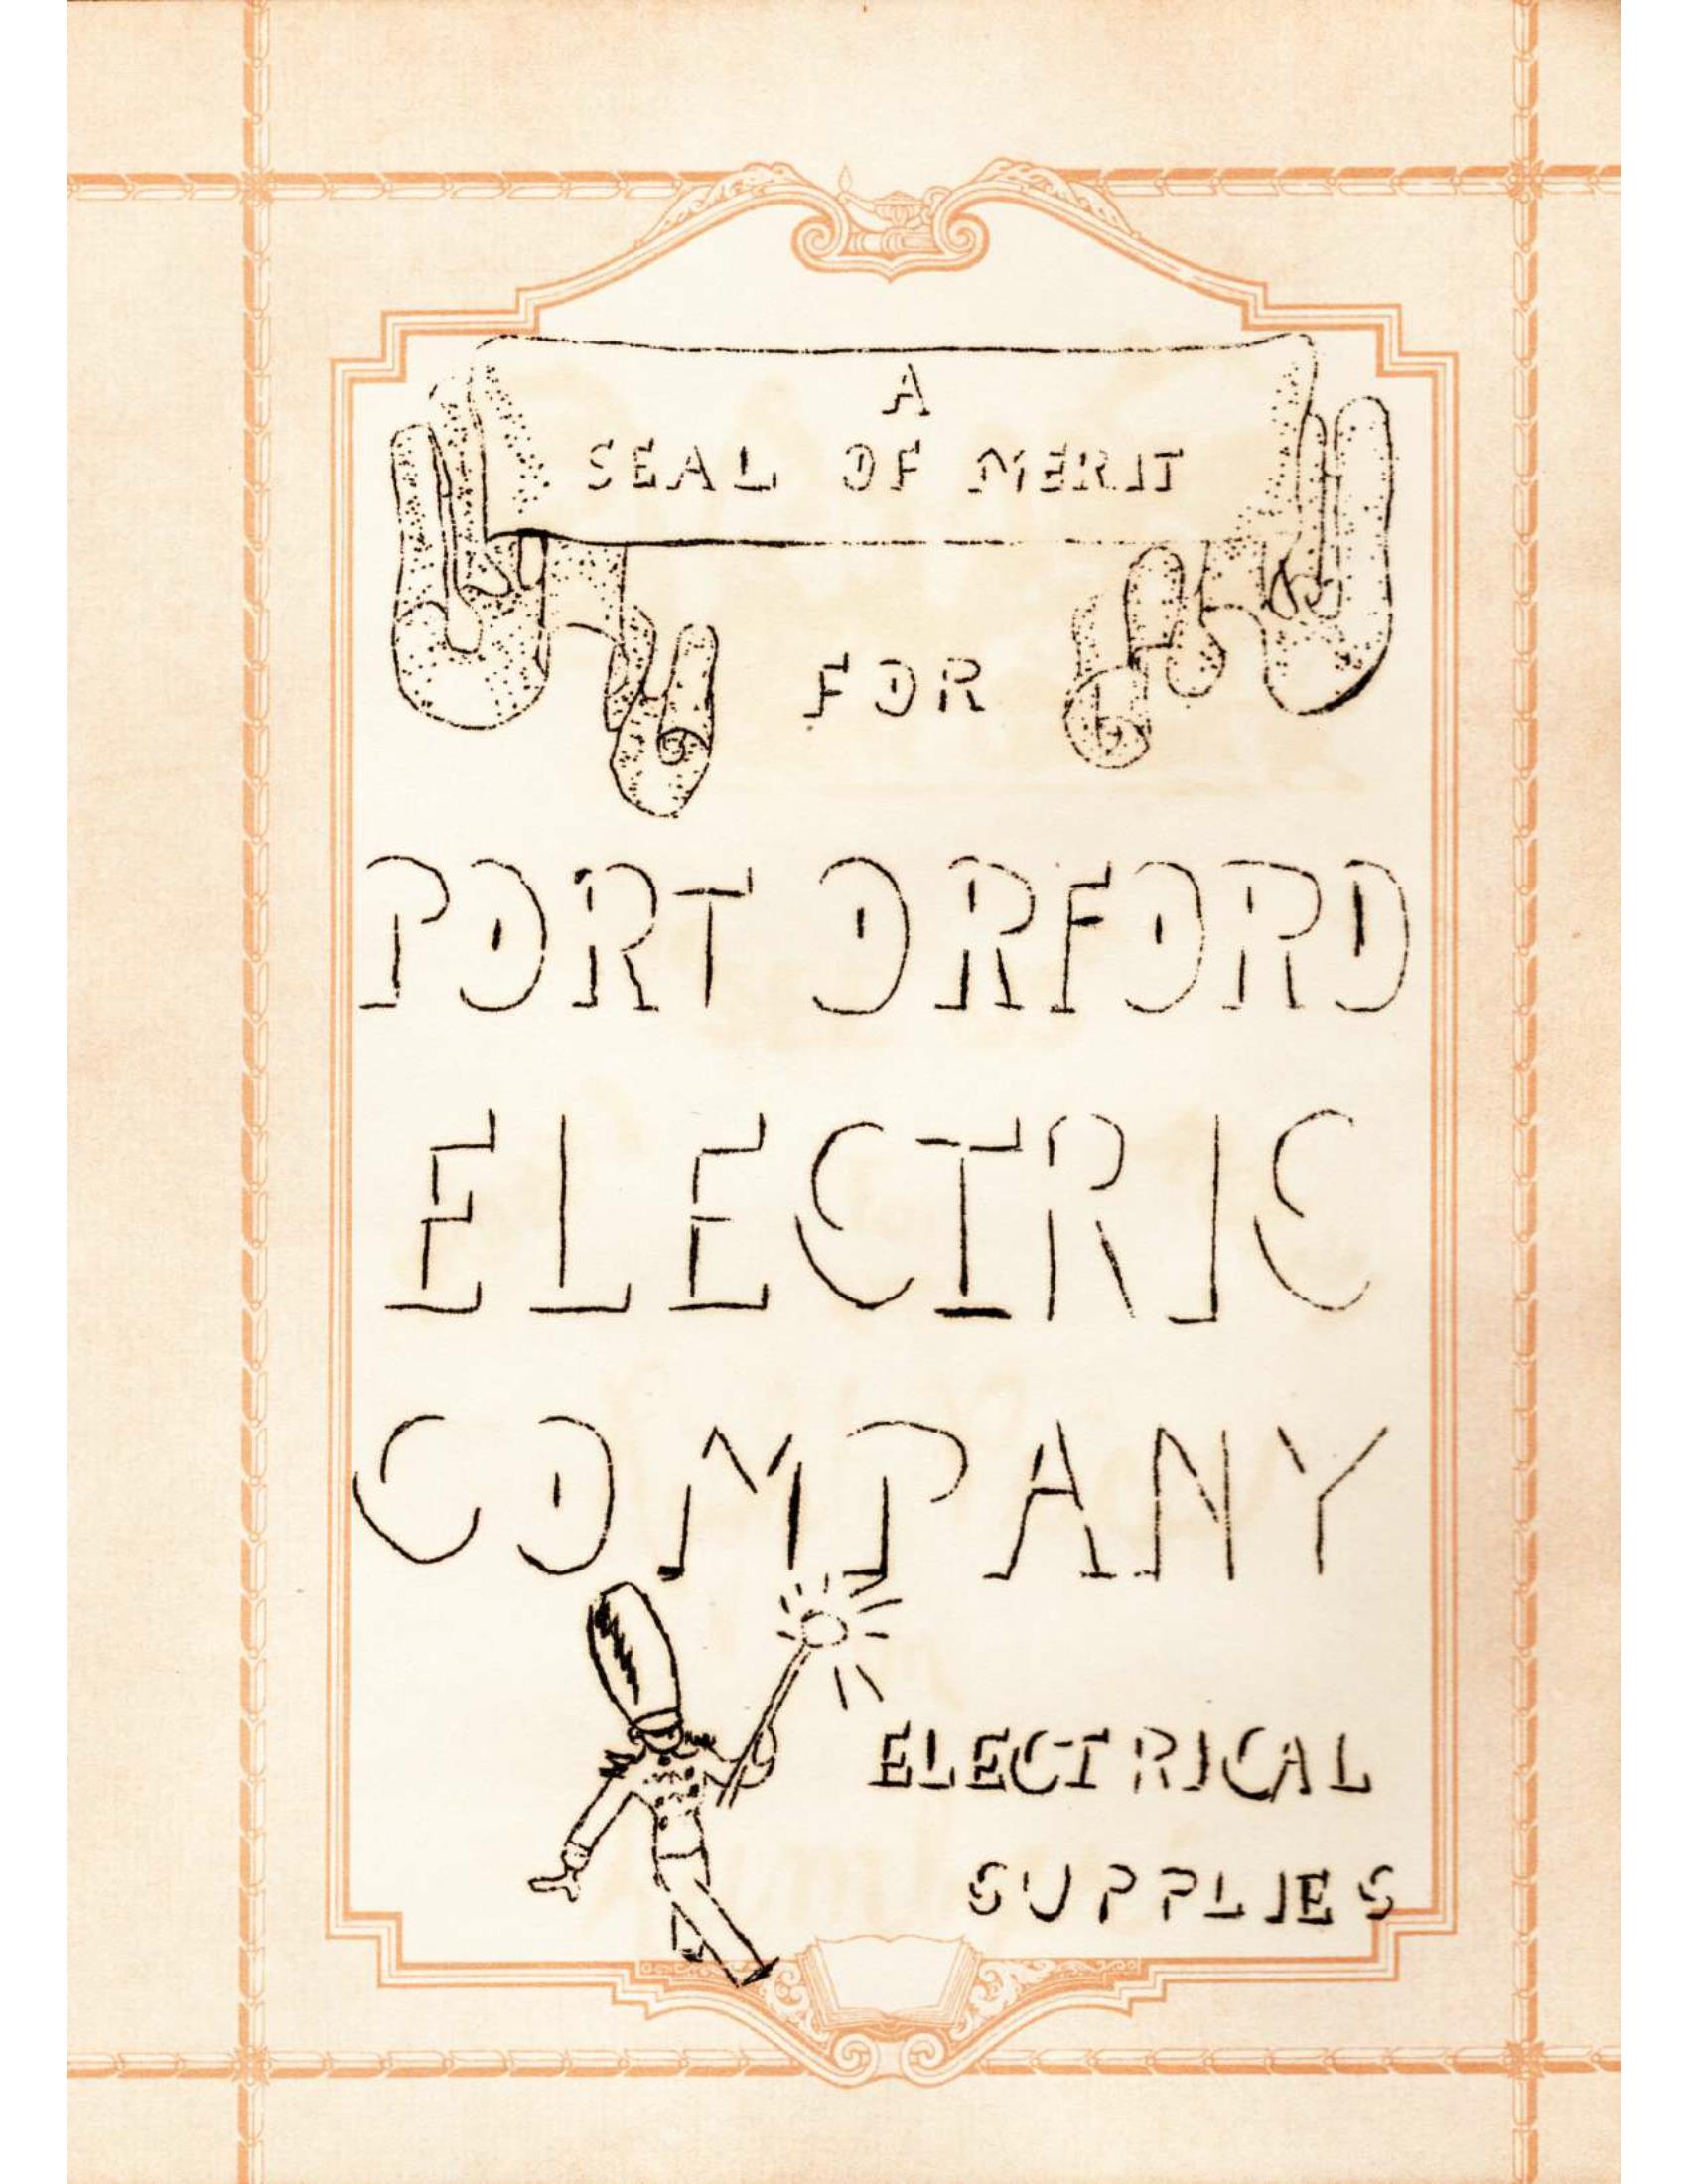 A
SEAL OF MERIT
FOR
PORT ORFORD
ELECTRIC
COMPANY
ELECTRICAL
SUPPLIES